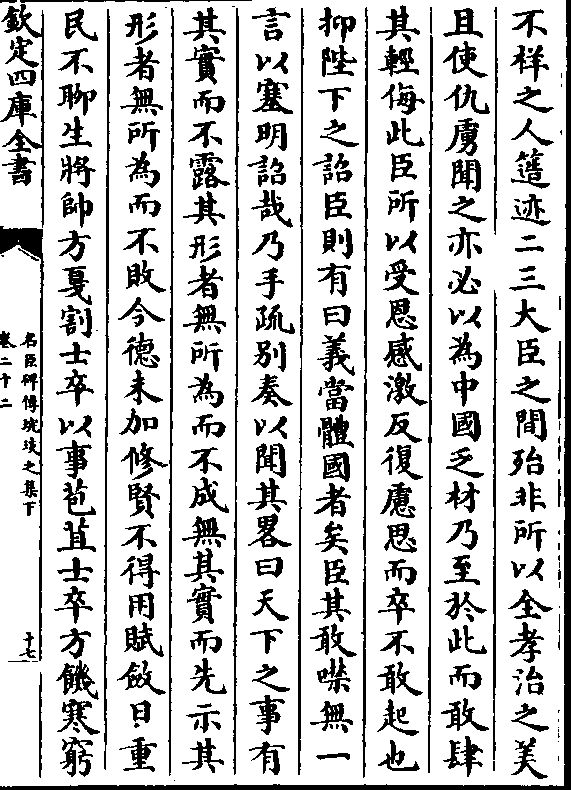 不祥之人簉迹二三大臣之間殆非所以全孝治之美
且使仇虜聞之亦必以為中國乏材乃至於此而敢肆
其輕侮此臣所以受恩感激反復慮思而卒不敢起也
抑陛下之詔臣則有曰義當體國者矣臣其敢噤無一
言以塞明詔哉乃手疏别奏以聞其畧曰天下之事有
其實而不露其形者無所為而不成無其實而先示其
形者無所為而不敗今德未加修賢不得用賦斂日重
民不聊生將帥方戛割士卒以事苞苴士卒方饑寒窮
欽定四庫全書
名臣碑傳琬琰之集下
卷二十二
十七